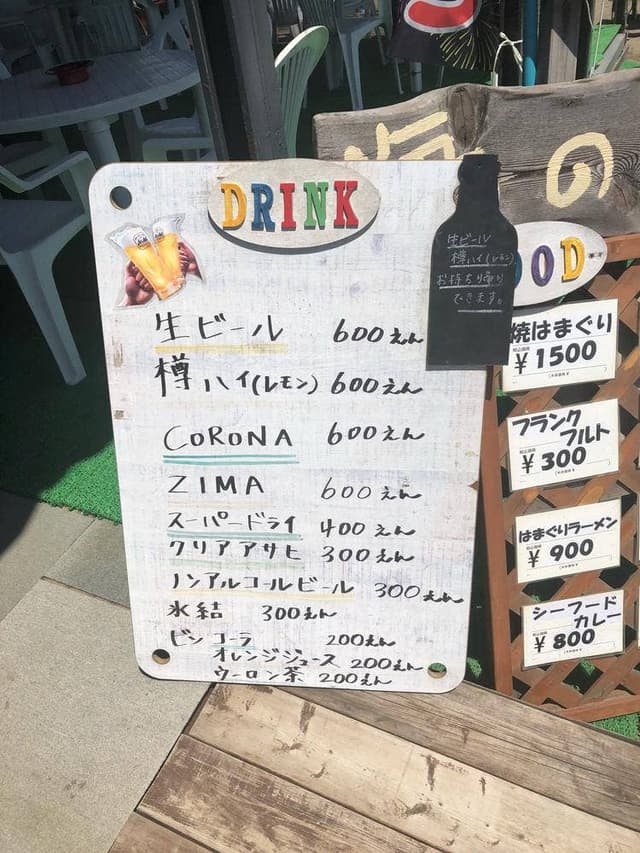 の
DRINK
生ビール 600えん
樽ハイ(レモン) 600えん
CORONA 600えん
ZIMA 600えん
スーパードライ 400えん
クリアアサヒ 300えん
ノンアルコールビール 300えん
氷結 300えん
ビンコーラ 200えん
オレンジジュース 200えん
ウーロン茶 200えん
生ビール
樽ハイ(レモン)
お持ち帰り
できます。
OOD
焼はまぐり
¥1500
フランク
フルト
¥300
はまぐりラーメン
¥900
シーフード
カレー
¥800